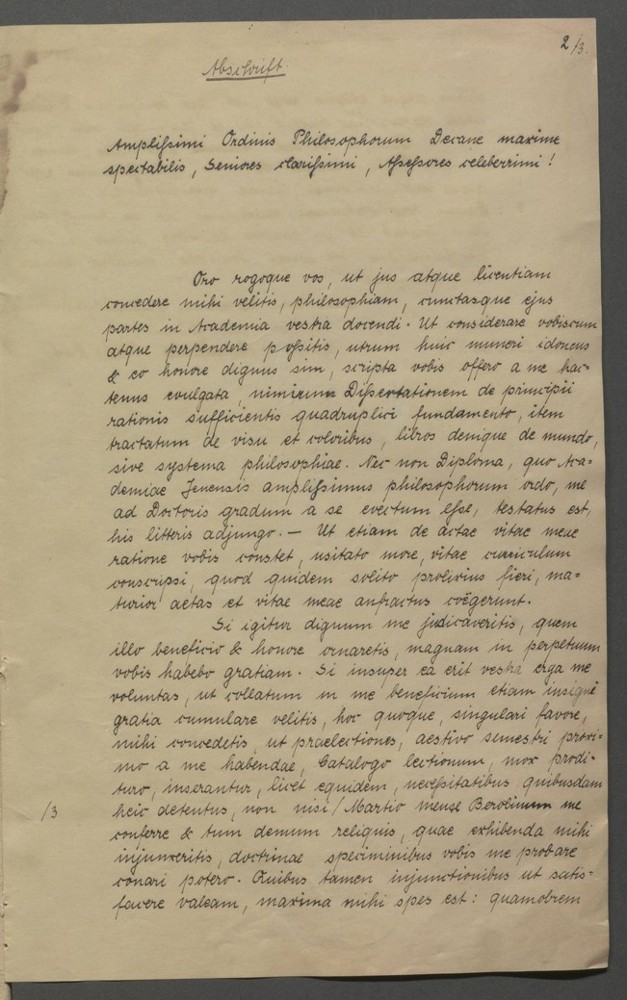 2/3.
Abschrift.
Amplißimi Ordinis Philosophorum Decane maxime
spectabilis, Seniores clarißimi, Aßeßores celeberrimi!
Oro rogoque vos, ut jus atque licentiam
concedere mihi velitis, philosophiam, cunctasque ejus
partes in Academia vestra docendi. Ut considerare vobiscum
atque perpendere poßitis, utrum huic muneri idoneus
& eo honore dignus sim, scripta vobis offero a me hac-
tenus evulgata, nimirum Dißertationem de principii
rationis sufficientis quadruplici fundamento, item
tractatum de visu et coloribus, libros denique de mundo,
sive systema philosophiae. Nec non Diploma, quo Aca=
demiae Jenensis amplißimus philosophorum ordo, me
ad Doctoris gradum a se evectum eße, testatus est,
his litteris adjungo. — Ut etiam de actae vitae meae
ratione vobis constet, usitato more, vitae curriculum
conscripsi, quod quidem solito prolixius fieri, ma=
turior aetas et vitae meae anfractus coëgerunt.
Si igitur dignum me judicaveritis, quem
illo beneficio & honore ornaretis, magnam in perpetuum
vobis habebo gratiam. Si insuper ea erit vestra erga me
voluntas, ut collatum in me beneficium etiam insigni
gratia cumulare velitis, hoc quoque, singulari favore,
mihi concedetis, ut praelectiones, aestivo semestri proxi-
mo a me habendae, Catalogo lectionum, mox prodi-
turo, inserantur, licet equidem, neceßitatibus quibusdam
heic detentus, non nisi / Martio mense Berolinum me
/3
conferre & tum demum reliquis, quae exhibenda mihi
injunxeritis, doctrinae speciminibus vobis me probare
conari potero. Quibus tamen injunctionibus ut satis=
facere valeam, maxima mihi spes est: quamobrem